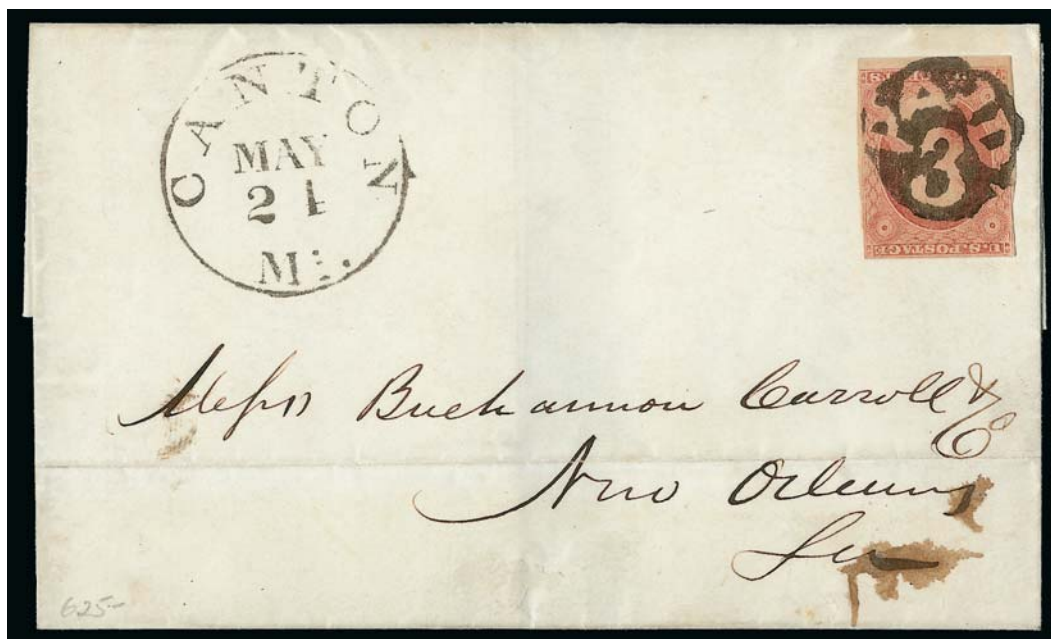 CANTON
MAY
21
Mi.
PAID
3
U.S. POSTAGE
Messrs Buchannon Carroll & Co
New Orleans
La
625-